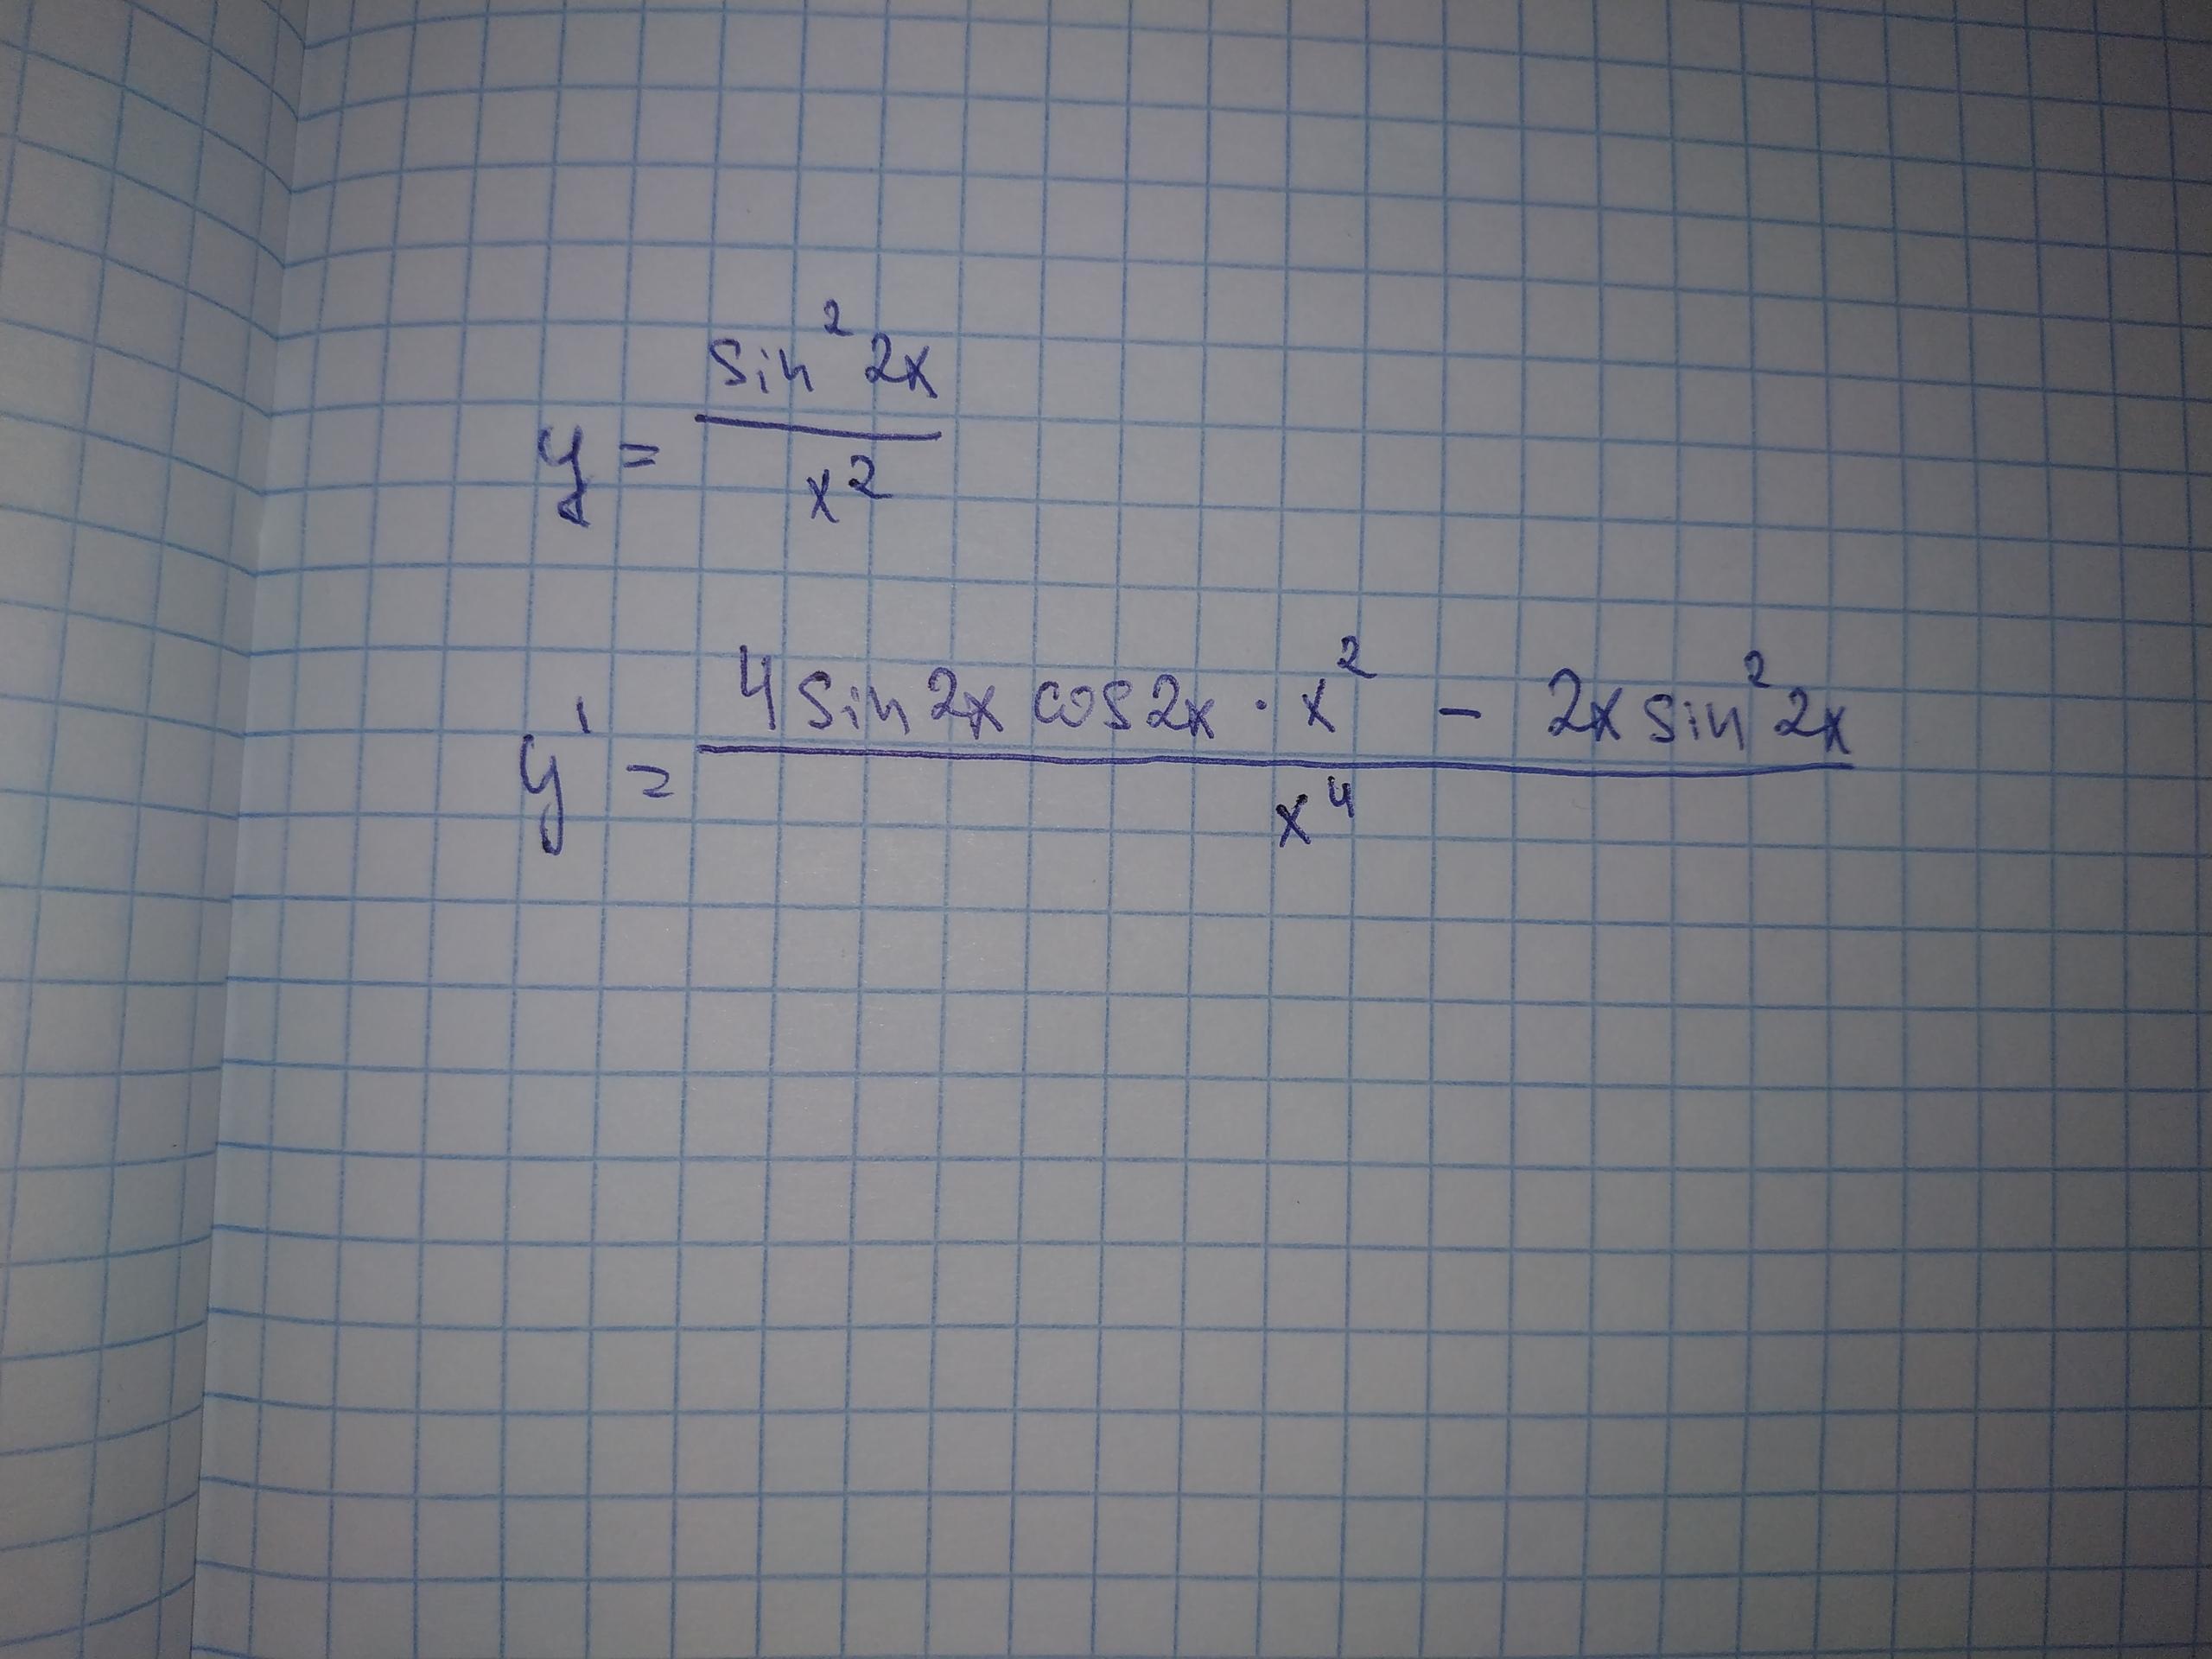 y = sin² 2x / x²
y' = 4 sin 2x cos 2x · x² - 2x sin² 2x / x⁴